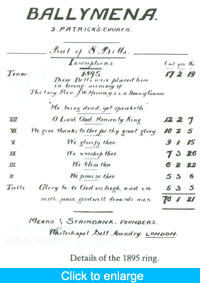 BALLYMENA.
S. PATRICK'S CHURCH.
Peal of 8 Bells.
Inscriptions Cwt qrs lbs
Tenor 1895. 17 2 19
These Bells were placed here
in loving memory of
The Very Rev. J.W. Murray, LL.D Dean of Connor
"He being dead, yet speaketh"
VII O Lord God, Heavenly King 12 2 7
VI We give thanks to thee for thy great glory 10 2 5
V We glorify thee 9 1 15
IV We worship thee 7 3 26
III We bless thee 6 2 22
II We praise thee 5 3 6
Treble Glory be to God on high, and on 5 3 5
earth peace, goodwill towards men 76 1 21
MEARS & STAINBANK, FOUNDERS.
Whitechapel Bell Foundry, LONDON.
Details of the 1895 ring.
Click to enlarge